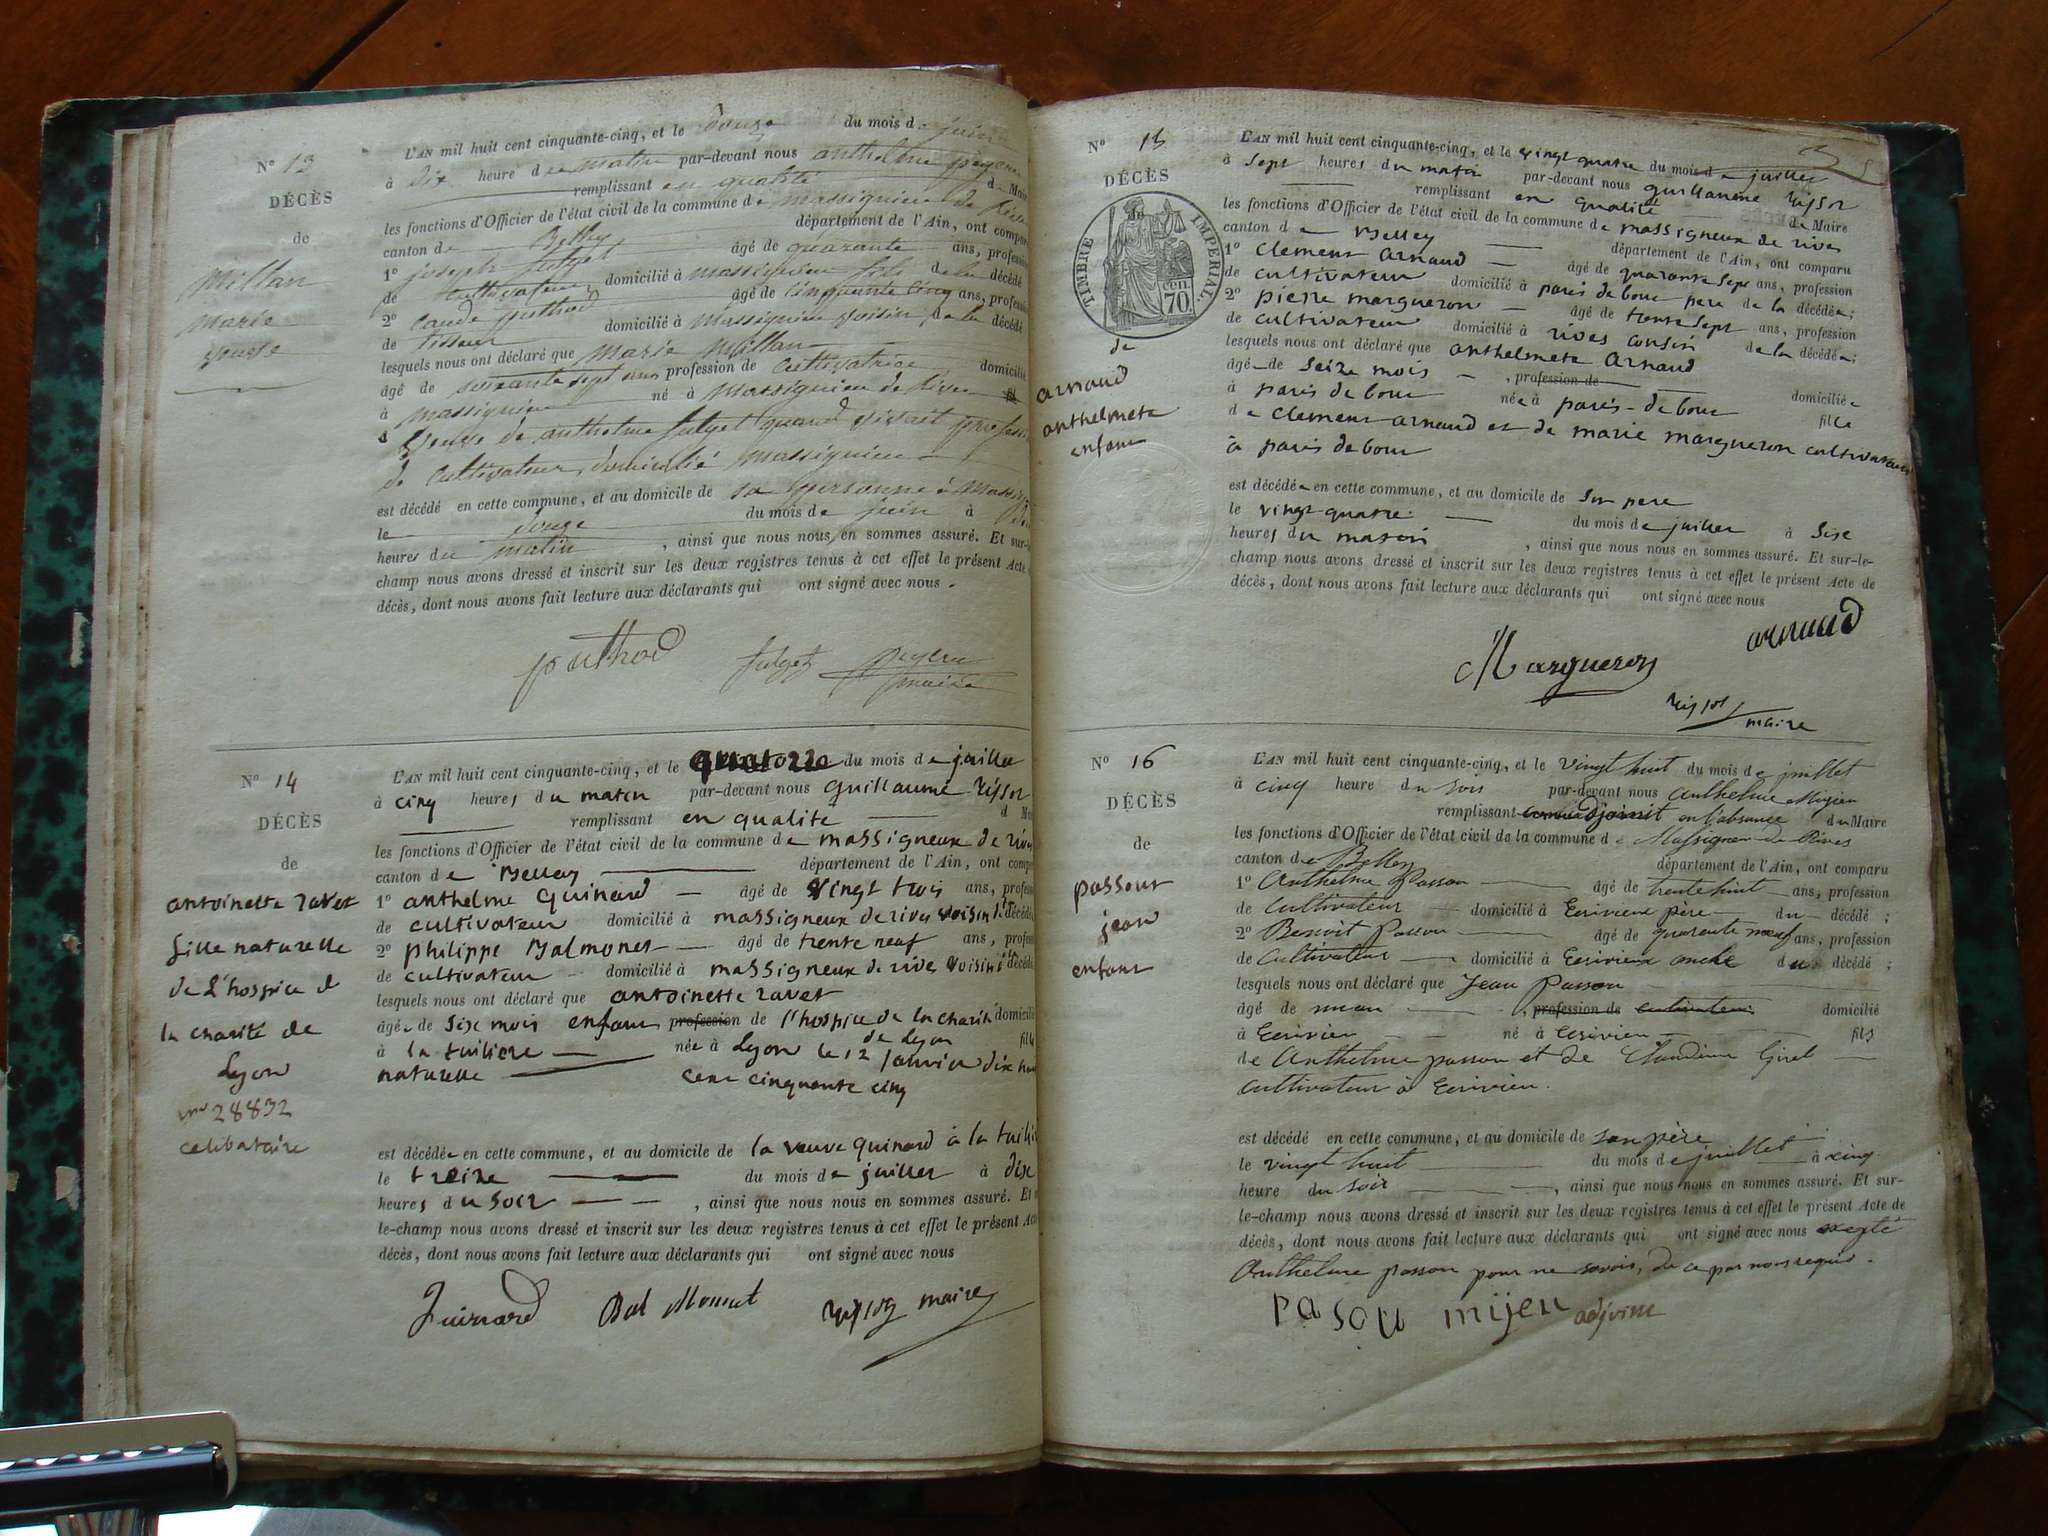 N° 13
DÉCÈS
de
Millan
marie
L'AN mil huit cent cinquante-cinq, et le douze du mois de juin
à dix heure de matin par-devant nous anthelme peyen
remplissant en qualité de Mai
les fonctions d'Officier de l'état civil de la commune de massignieu de Rives
canton de Belley département de l'Ain, ont compa
1° joseph âgé de quarante ans, profession
de cultivateur domicilié à massignieu fils de la décédé
2° Claude puthod âgé de cinquante cinq ans, profession
de tisseur domicilié à massignieu voisin de la décédé
lesquels nous ont déclaré que marie Millan
âgé de soixante sept ans profession de cultivatrice domicilié
à massignieu né à massignieu de Rives
épouse de anthelme quand vivait
de cultivateur domicilié massignieu
est décédé en cette commune, et au domicile de sa personne à
le douze du mois de juin à
heures du matin , ainsi que nous nous en sommes assuré. Et sur-le
champ nous avons dressé et inscrit sur les deux registres tenus à cet effet le présent Acte
décès, dont nous avons fait lecture aux déclarants qui ont signé avec nous.
puthod
maire
N° 14
DÉCÈS
de
antoinette ravet
fille naturelle
de l'hospice d
la charité de
Lyon
28832
celibataire
L'AN mil huit cent cinquante-cinq, et le quatorze du mois de juillet
à cinq heures du matin par-devant nous guillaume
remplissant en qualite d M
les fonctions d'Officier de l'état civil de la commune de massigneux de rives
canton de Belley département de l'Ain, ont compa
1° anthelme Quinard âgé de vingt trois ans, profess
de cultivateur domicilié à massigneux de rives voisin décédé
2° philippe Balmonet âgé de trente neuf ans, profess
de cultivateur domicilié à massigneux de rives voisin décédé
lesquels nous ont déclaré que antoinette ravet
âgée de six mois enfant profession de l'hospice de la charité domicilié
de Lyon
à la tuiliere née à Lyon le 12 janvier dix huit fill
naturelle cent cinquante cinq
est décédée en cette commune, et au domicile de la veuve quinard à la tuili
le treize du mois de juillet à dix
heures du soir , ainsi que nous nous en sommes assuré. Et
le-champ nous avons dressé et inscrit sur les deux registres tenus à cet effet le présent Ac
décès, dont nous avons fait lecture aux déclarants qui ont signé avec nous
Guinard Bal Monet maire
N° 15
DÉCÈS
TIMBRE IMPÉRIAL
70 CEN.
de
arnaud
anthelmete
enfant
L'AN mil huit cent cinquante-cinq, et le vingt quatre du mois de juillet
à sept heures du matin par-devant nous guillaume
remplissant en qualité de Maire
les fonctions d'Officier de l'état civil de la commune de massigneux de rives
canton de Belley département de l'Ain, ont comparu
1° Clement Arnaud âgé de quarante sept ans, profession
de cultivateur domicilié à parés de bouc pere de la décédée;
2° pierre margueron âgé de trente sept ans, profession
de cultivateur domicilié à rives cousin de la décédée;
lesquels nous ont déclaré que anthelmete Arnaud
âgé de seize mois , profession de domiciliée
à parés de bouc née à parés-de bouc fille
de Clement arnaud et de marie margueron cultivateurs
à parés de bouc
est décédée en cette commune, et au domicile de son pere
le vingt quatre du mois de juillet à sixe
heures du matin , ainsi que nous nous en sommes assuré. Et sur-le-
champ nous avons dressé et inscrit sur les deux registres tenus à cet effet le présent Acte de
décès, dont nous avons fait lecture aux déclarants qui ont signé avec nous
arnaud
Margueron
maire
N° 16
DÉCÈS
de
passout
jean
enfant
L'AN mil huit cent cinquante-cinq, et le vingt huit du mois de juillet
à cinq heure du soir par-devant nous anthelme Migieu
remplissant adjoint en l'absence du Maire
les fonctions d'Officier de l'état civil de la commune de Massignieu de Rives
canton de Belley département de l'Ain, ont comparu
1° Anthelme Passou âgé de trente huit ans, profession
de Cultivateur domicilié à Ecrivieux père du décédé ;
2° Benoit Passou âgé de quarante neuf ans, profession
de Cultivateur domicilié à Ecrivieux oncle du décédé ;
lesquels nous ont déclaré que Jean Passou
âgé de profession de cultivateur domicilié
à Ecrivieu né à Ecrivieu fils
de Anthelme passou et de Claudine Girel
cultivateur à Ecrivieu.
est décédé en cette commune, et au domicile de son père
le vingt huit du mois de juillet à cinq
heure du soir , ainsi que nous nous en sommes assuré. Et sur-
le-champ nous avons dressé et inscrit sur les deux registres tenus à cet effet le présent Acte de
décès, dont nous avons fait lecture aux déclarants qui ont signé avec nous excepté
Anthelme passou pour ne savoir, de ce par nous requis.
PaSou mijeu adjoint